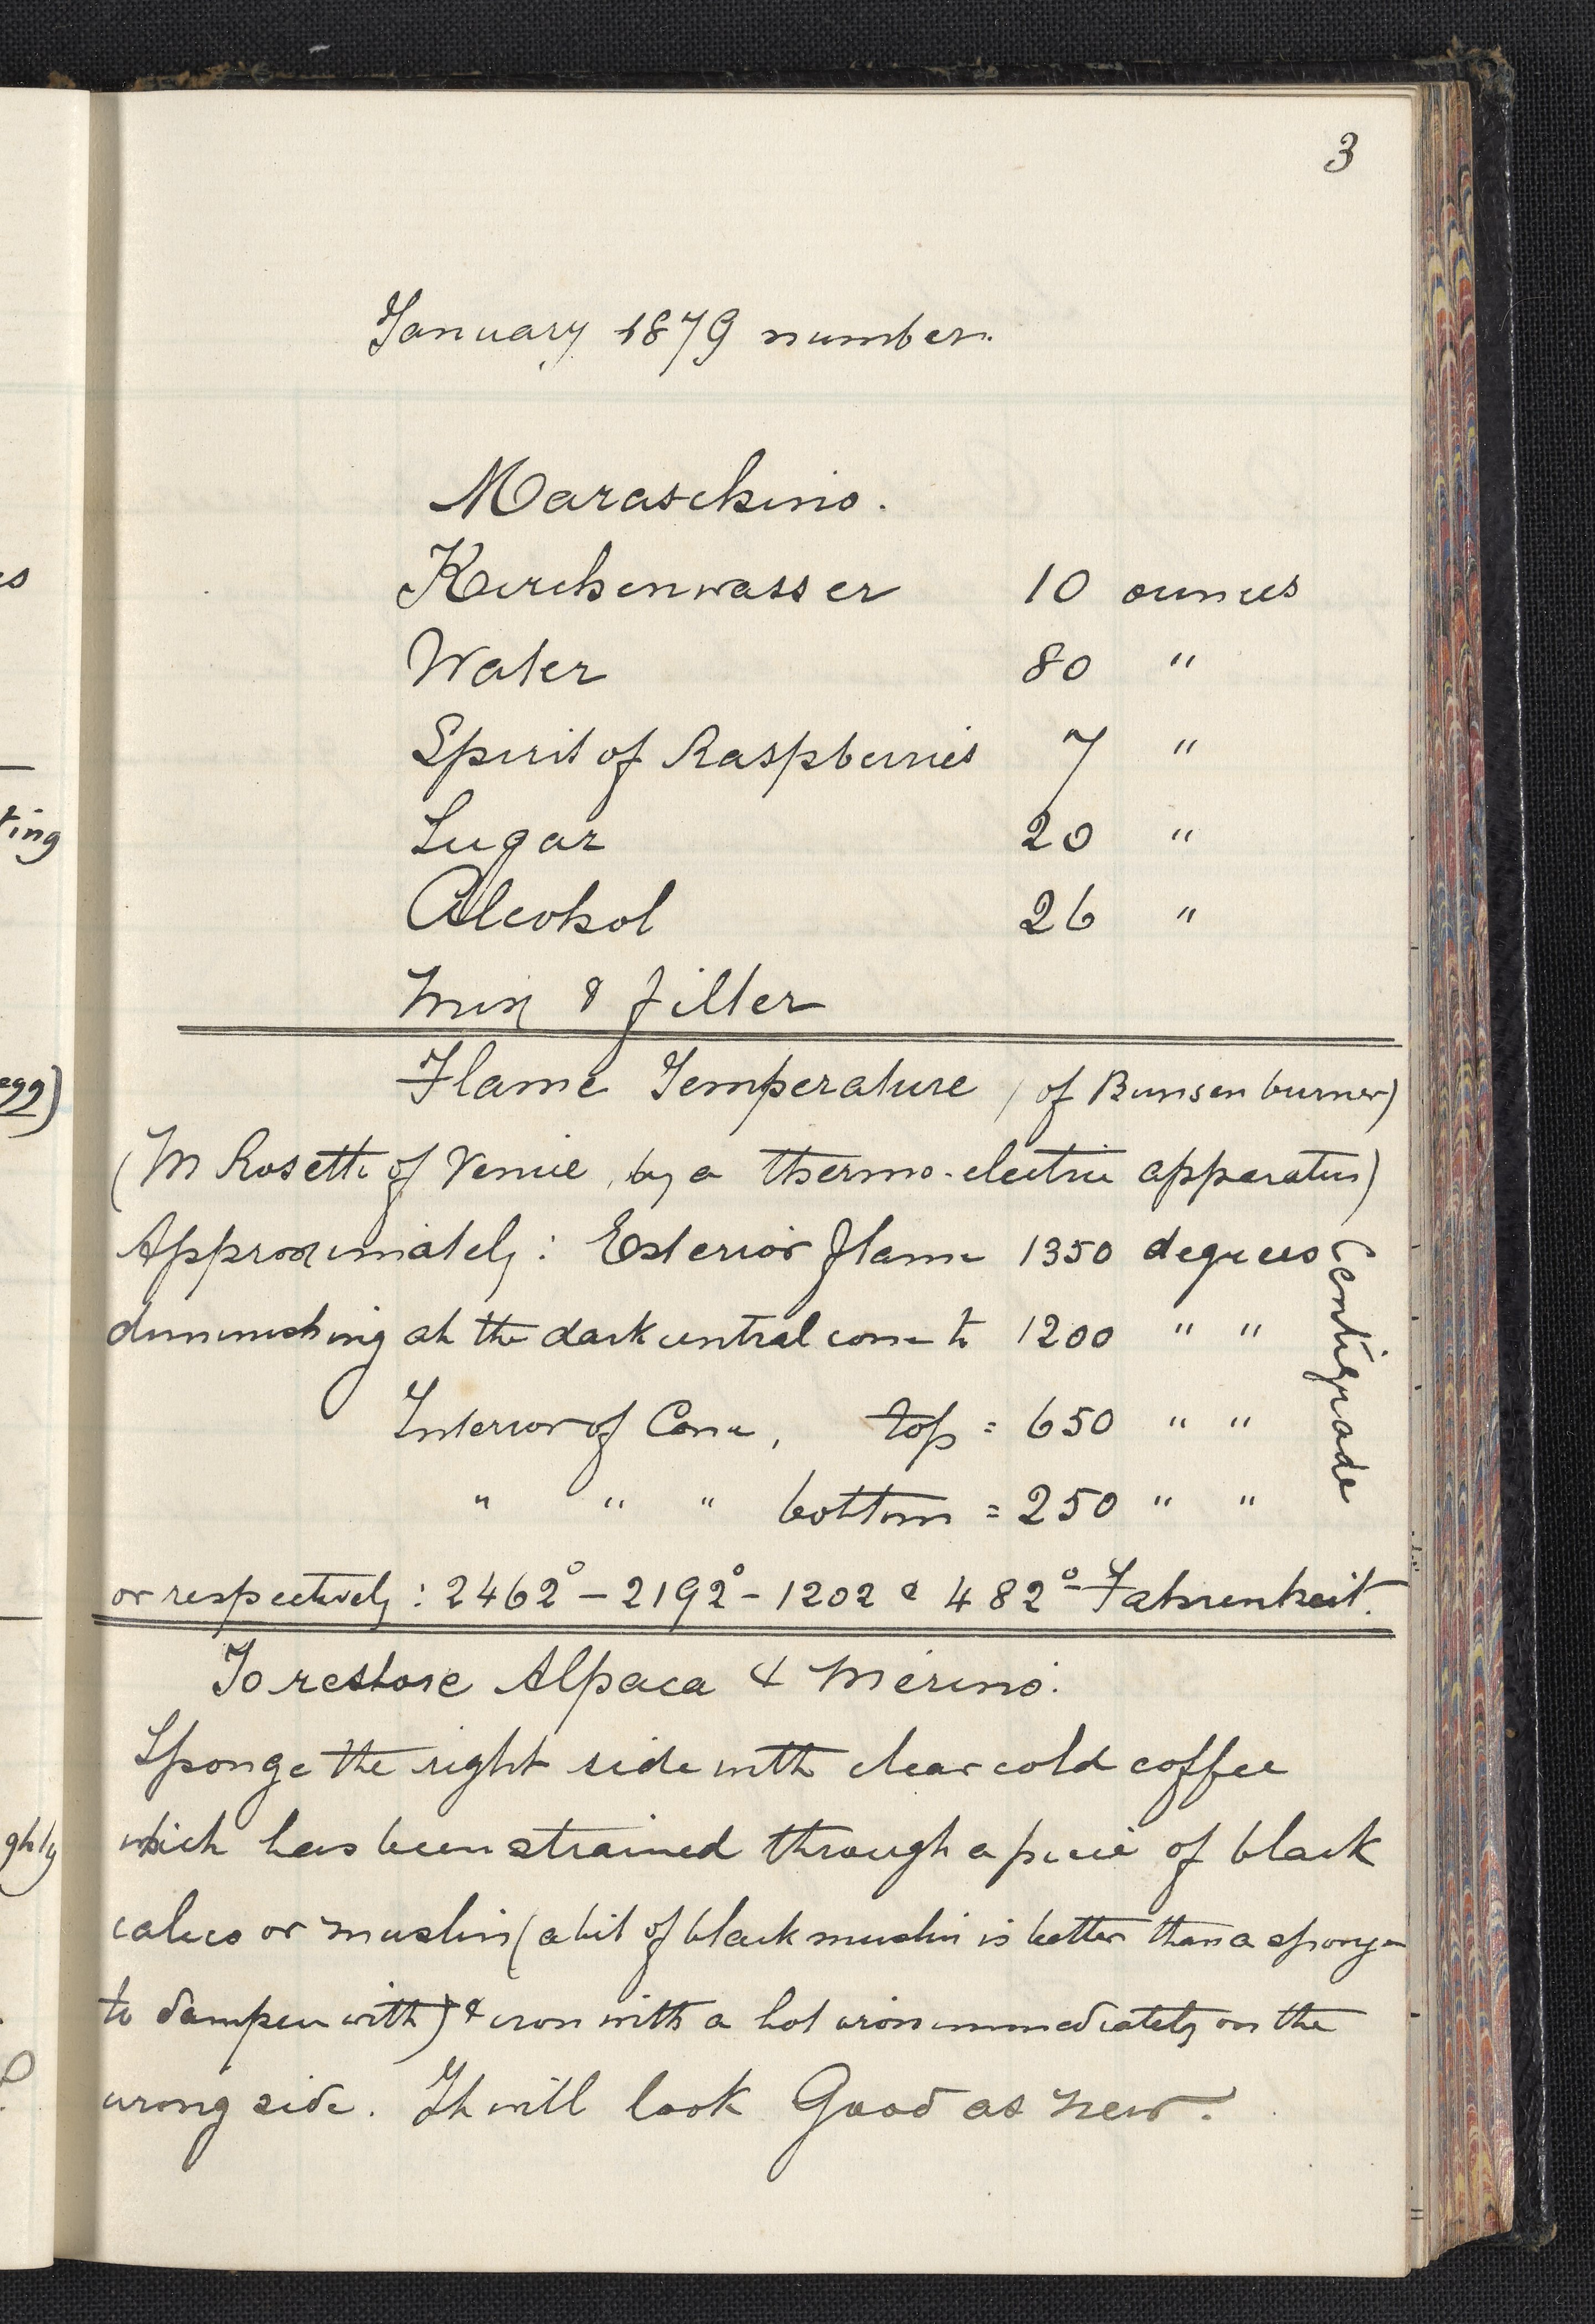 3
January 1879 number.
Maraschino.
Kirchenwasser 10 ounces
Water 80 "
Spirit of Raspberries 7 "
Sugar 20 "
Alcohol 26 "
Mix & filter
Flame Temperature (of Bunsen burner)
(M Rosetti of Venice, by a thermo-electric apparatus)
Approximately: Exterior flame 1350 degrees Centigrade
diminishing at the dark central cone to 1200 " "
Interior of Cone, top = 650 " "
" " " bottom = 250 " "
or respectively: 2462° - 2192° - 1202 & 482° Fahrenheit.
To restore Alpaca & Merino.
Sponge the right side with clear cold coffee
which has been strained through a piece of black
calico or muslin (a bit of black muslin is better than a sponge
to dampen with) & iron with a hot iron immediately on the
wrong side. It will look Good as new.
es
ting
egg)
ghly